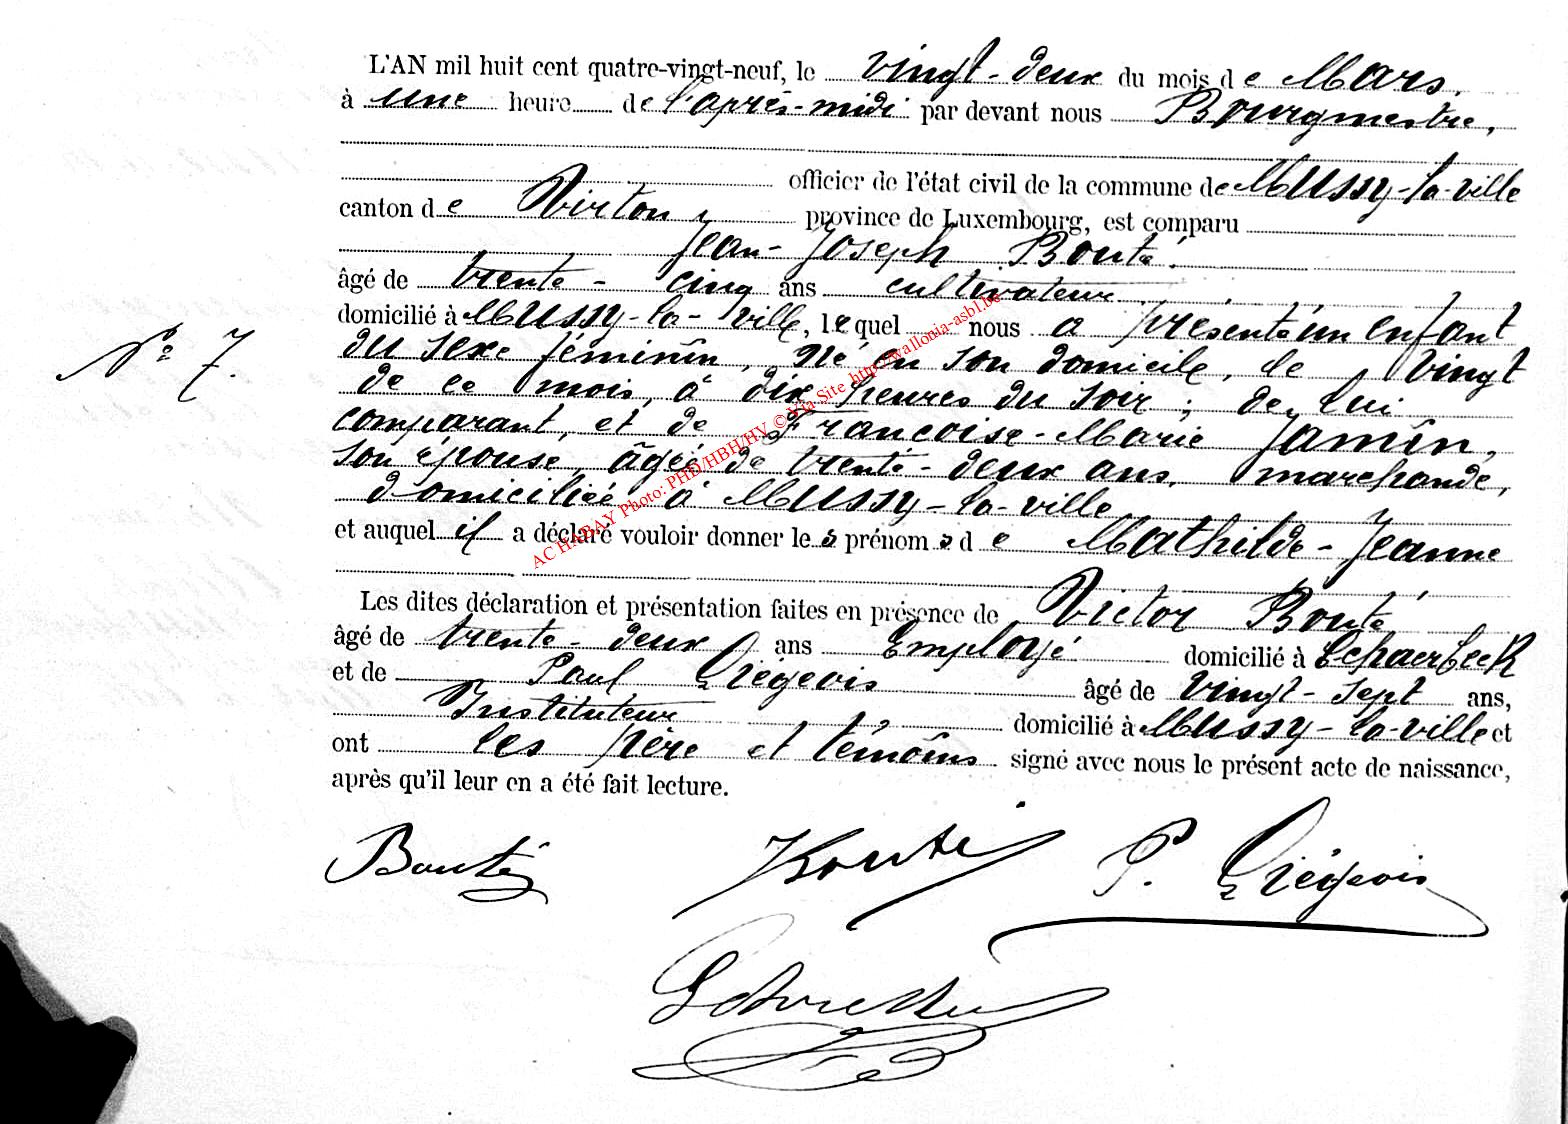 L'AN mil huit cent quatre-vingt-neuf, le vingt-deux du mois de Mars,
à une heure de l'après-midi par devant nous Bourgmestre,
officier de l'état civil de la commune de Mussy-la-ville
canton de Virton, province de Luxembourg, est comparu
Jean-Joseph Bouté.
âgé de trente-cinq ans cultivateur
domicilié à Mussy-la-ville, lequel nous a présenté un enfant
N° 7.
du sexe féminin, né en son domicile, le vingt
de ce mois, à dix heures du soir; de lui
comparant, et de Francoise-Marie Jamin,
son épouse, âgée de trente-deux ans, marchande,
domiciliée à Mussy-la-ville
et auquel il a déclaré vouloir donner les prénoms de Mathilde-Jeanne
Les dites déclaration et présentation faites en présence de Victor Bouté
âgé de trente-deux ans Employé domicilié à Schaerbeek
et de Paul Liégeois âgé de vingt-sept ans,
Instituteur domicilié à Mussy-la-ville et
ont les père et témoins signé avec nous le présent acte de naissance,
après qu'il leur en a été fait lecture.
Bouté VBouté P. Liégeois
AC HABAY Photo: PHD/HBH/HV © Via Site http://wallonia-asbl.be